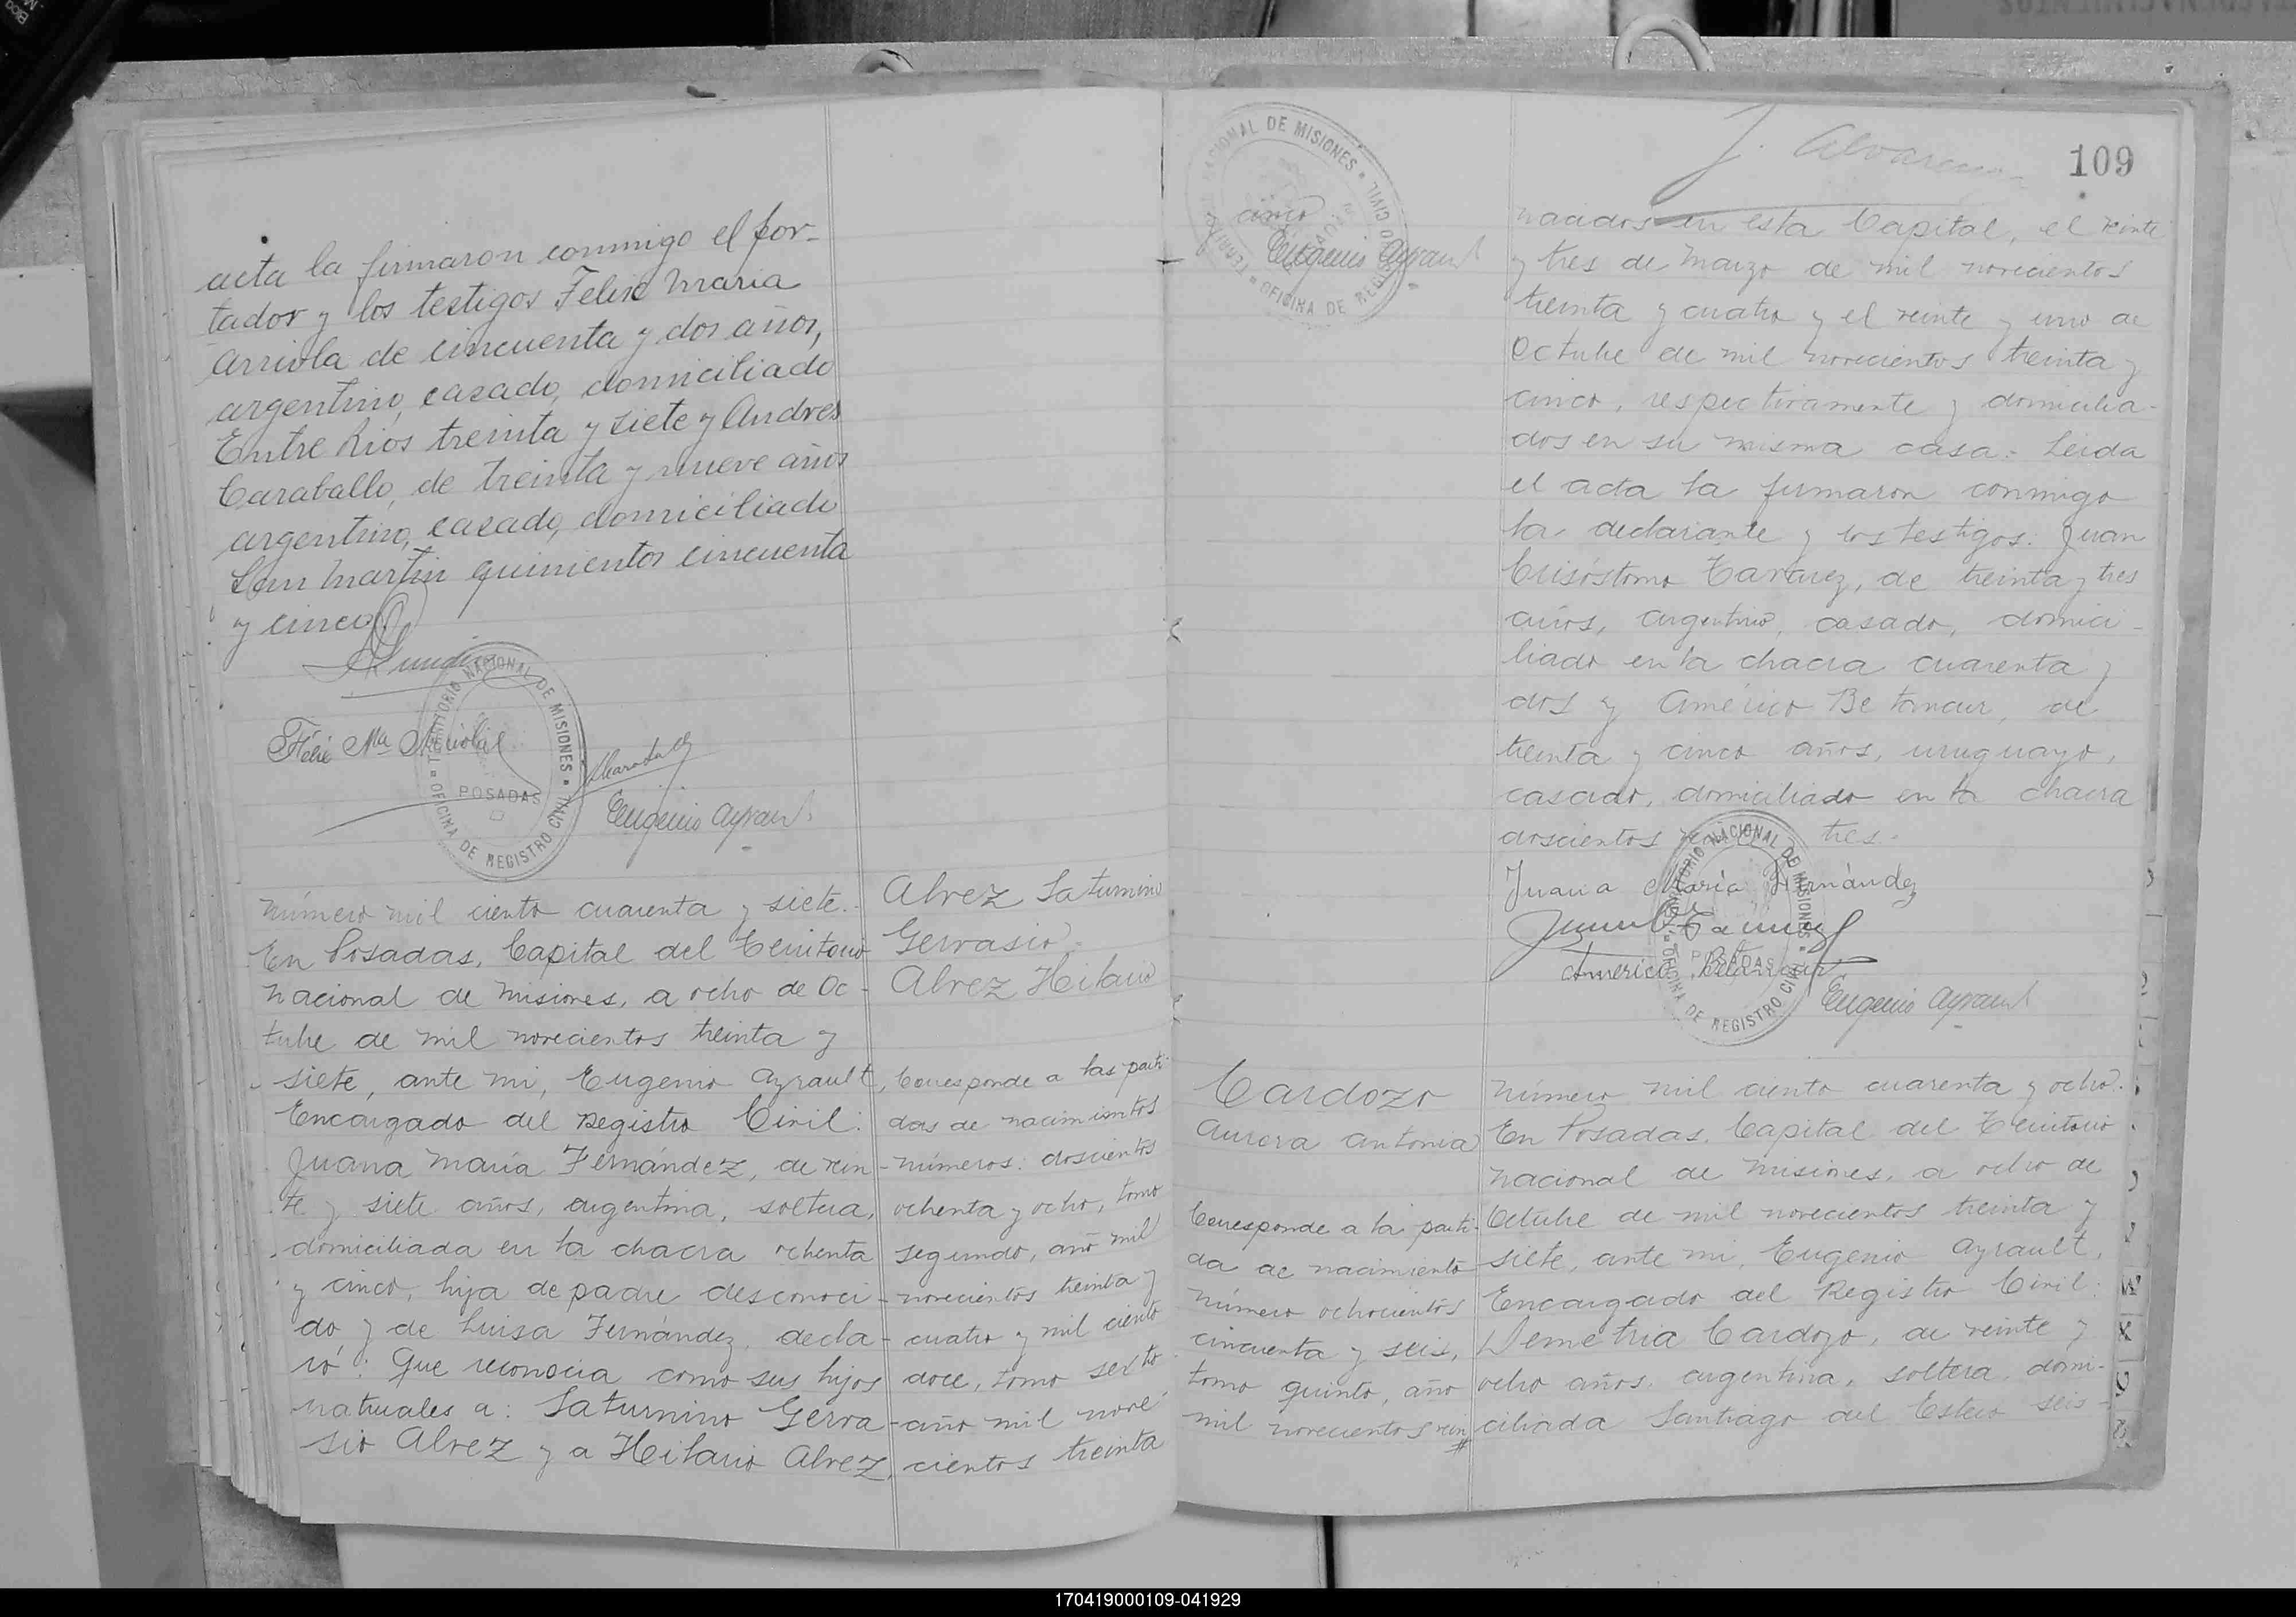 acta la firmaron conmigo el por-
tador y los testigos Felix Maria
Arriola de cincuenta y dos años,
argentino, casado, domiciliado
Entre Rios treinta y siete y Andres
Caraballo, de treinta y nueve años
argentino, casado, domiciliado
San Martin quinientos cincuenta
y cinco.
Félix Mª Arriola
TERRITORIO NACIONAL DE MISIONES
OFICINA DE REGISTRO CIVIL
POSADAS
Eugenio Ayrault
Número mil ciento cuarenta y siete.-
En Posadas, Capital del Territorio
Nacional de Misiones, a ocho de Oc-
tubre de mil novecientos treinta y
siete, ante mi, Eugenio Ayrault,
Encargado del Registro Civil:
Juana María Fernández, de vein-
te y siete años, argentina, soltera,
domiciliada en la chacra ochenta
y cinco, hija de padre desconoci-
do y de Luisa Fernández, decla-
ró: Que reconocia como sus hijos
naturales a: Saturnino Gerva-
sio Alvez y a Hilario Alvez,
Alvez Saturnino
Gervasio.
Alvez Hilario
Corresponde a las parti-
das de nacimientos
números: doscientos
ochenta y ocho, tomo
segundo, año mil
novecientos treinta y
cuatro y mil ciento
doce, tomo sexto
año mil nove-
cientos treinta
TERRITORIO NACIONAL DE MISIONES
OFICINA DE REGISTRO CIVIL
cinco
Eugenio Ayrault
109
nacidos en esta Capital, el veinte
y tres de Marzo de mil novecientos
treinta y cuatro y el veinte y uno de
Octubre de mil novecientos treinta y
cinco, respectivamente y domicilia-
dos en su misma casa.- Leida
el acta la firmaron conmigo
la declarante y los testigos: Juan
Crisóstomo Tavarez, de treinta y tres
años, argentino, casado, domici-
liado en la chacra cuarenta y
dos y Américo Betancur, de
treinta y cinco años, uruguayo,
casado, domiciliado en la chacra
doscientos tres.-
Juana María Fernández
Américo Betancur
TERRITORIO NACIONAL DE MISIONES
OFICINA DE REGISTRO CIVIL
POSADAS
Eugenio Ayrault
Cardozo
Aurora Antonia
Corresponde a la parti-
da de nacimiento
número ochocientos
cincuenta y seis,
tomo quinto, año
mil novecientos vein
#
Número mil ciento cuarenta y ocho.-
En Posadas, Capital del Territorio
Nacional de Misiones, a ocho de
Octubre de mil novecientos treinta y
siete, ante mi, Eugenio Ayrault,
Encargado del Registro Civil:
Demetria Cardozo, de veinte y
ocho años, argentina, soltera, domi-
ciliada Santiago del Estero seis-
170419000109-041929